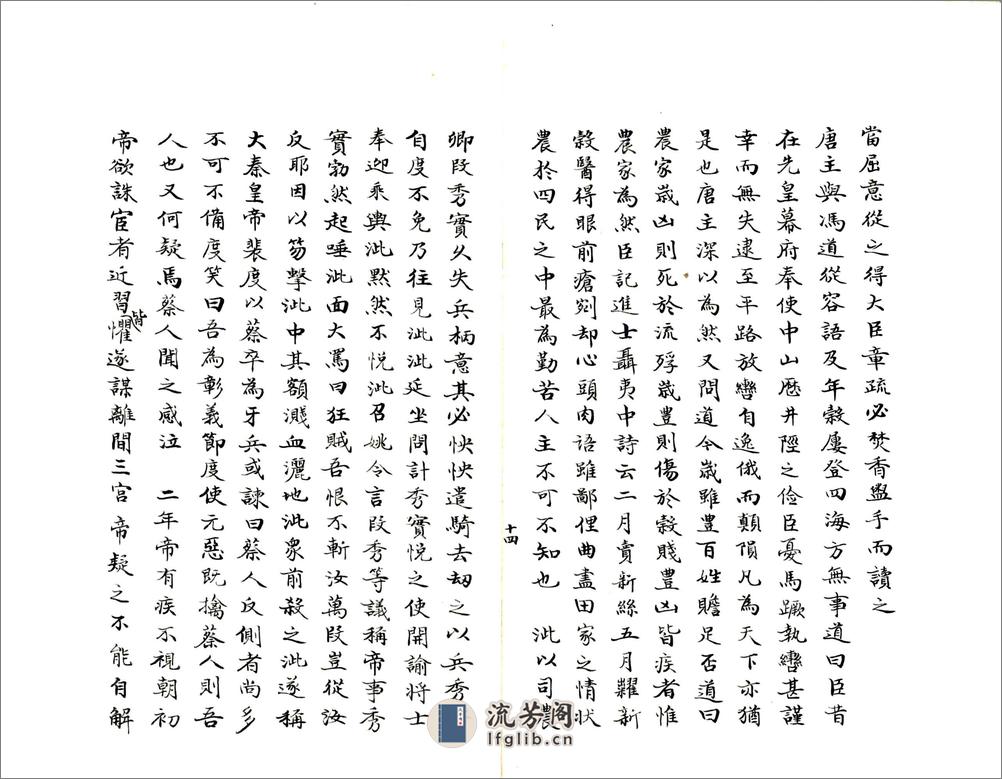 當屈意從之得大臣章疏必焚香盥手而讀之
唐主與馮道從容語及年穀屢登四海方無事道曰臣昔
在先皇幕府奉使中山歷井陘之儉臣憂馬蹶執轡甚謹
幸而無失逮至平路放轡自逸俄而顛隕凡為天下亦猶
是也唐主深以為然又問道今歲雖豊百姓贍足否道曰
農家歲凶則死於流殍歲豊則傷於穀賤豊凶皆疾者惟
農家為然臣記進士聶夷中詩云二月賣新絲五月糶新
穀醫得眼前瘡剜却心頭肉語雖鄙俚曲盡田家之情狀
農於四民之中最為勤苦人主不可不知也 泚以司農
十四
卿段秀實久失兵柄意其必怏怏遣騎去刼之以兵秀
自度不免乃往見泚泚延坐問計秀實悅之使開諭將士
奉迎乘輿泚默然不悅泚召姚令言段秀等議稱帝事秀
實勃然起唾泚面大罵曰狂賊吾恨不斬汝萬段豈從汝
反耶因以笏擊泚中其額濺血灑地泚衆前殺之泚遂稱
大秦皇帝裴度以蔡卒為牙兵或諫曰蔡人反側者尚多
不可不備度笑曰吾為彰義節度使元惡既擒蔡人則吾
人也又何疑焉蔡人聞之感泣 二年帝有疾不視朝初
帝欲誅宦者近習皆懼遂謀離間三宮帝疑之不能自解
流芳閣
lfglib.cn